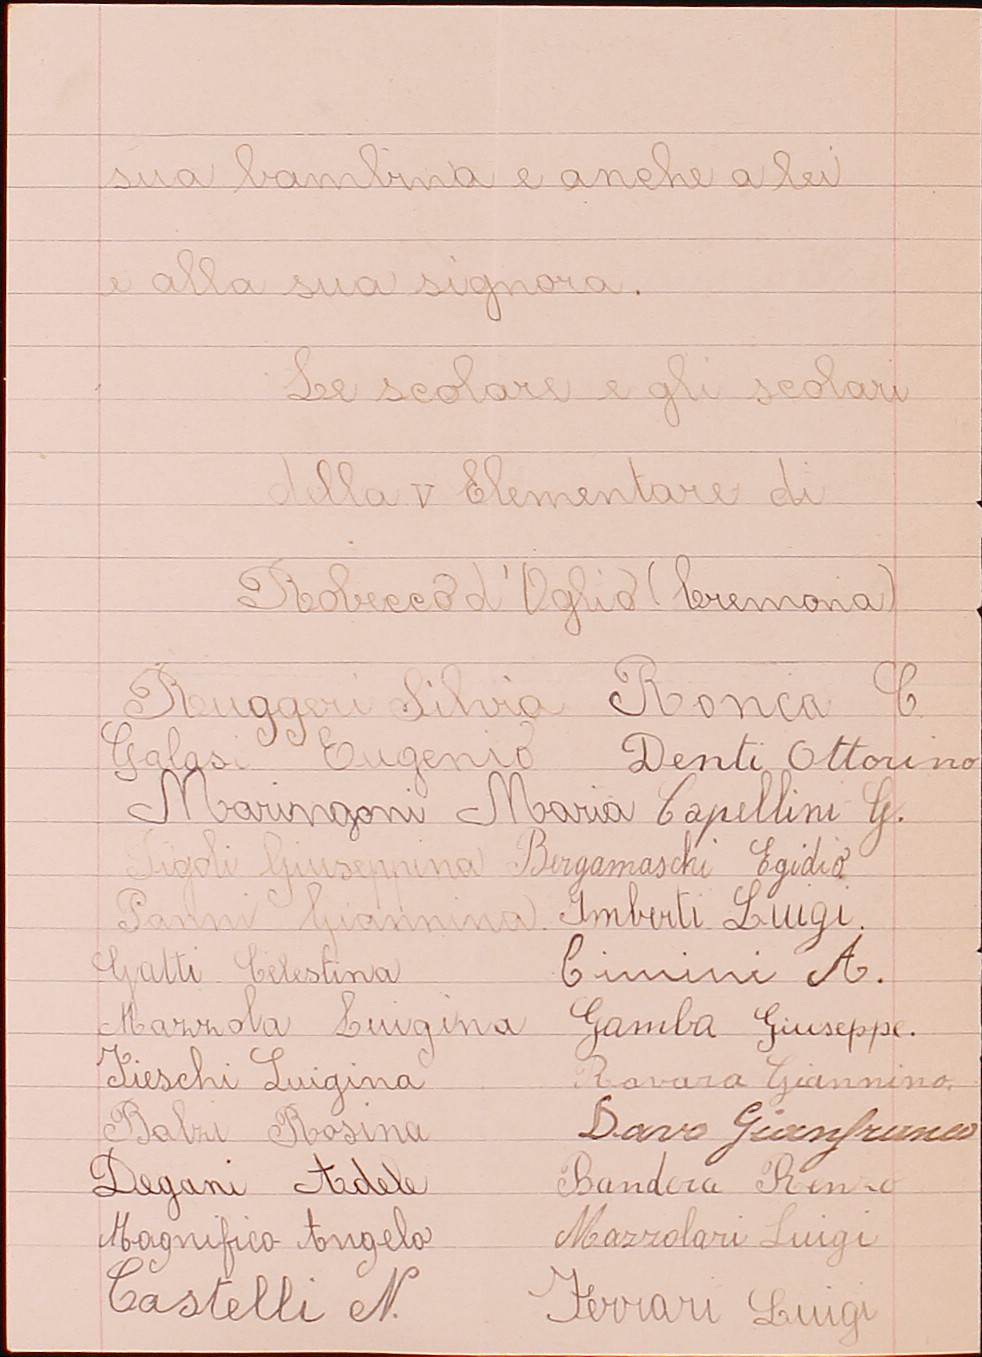 sua bambina e anche a lei
e alla sua signora.
Le scolare e gli scolari
della V Elementare di
Robecco d'Oglio (Cremona)
Ruggeri Silvia Ronca C.
Galasi Eugenio Denti Ottorino
Maringoni Maria Capellini G.
Figoli Giuseppina Bergamaschi Egidio
Panni Giannina Imberti Luigi.
Gatti Celestina Cimini A.
Mazzola Luigina Gamba Giuseppe.
Fieschi Luigina Ravara Giannino.
Balzi Rosina Davo Gianfranco
Degani Adele Bandera Renzo
Magnifico Angelo Mazzolari Luigi
Castelli N. Ferrari Luigi